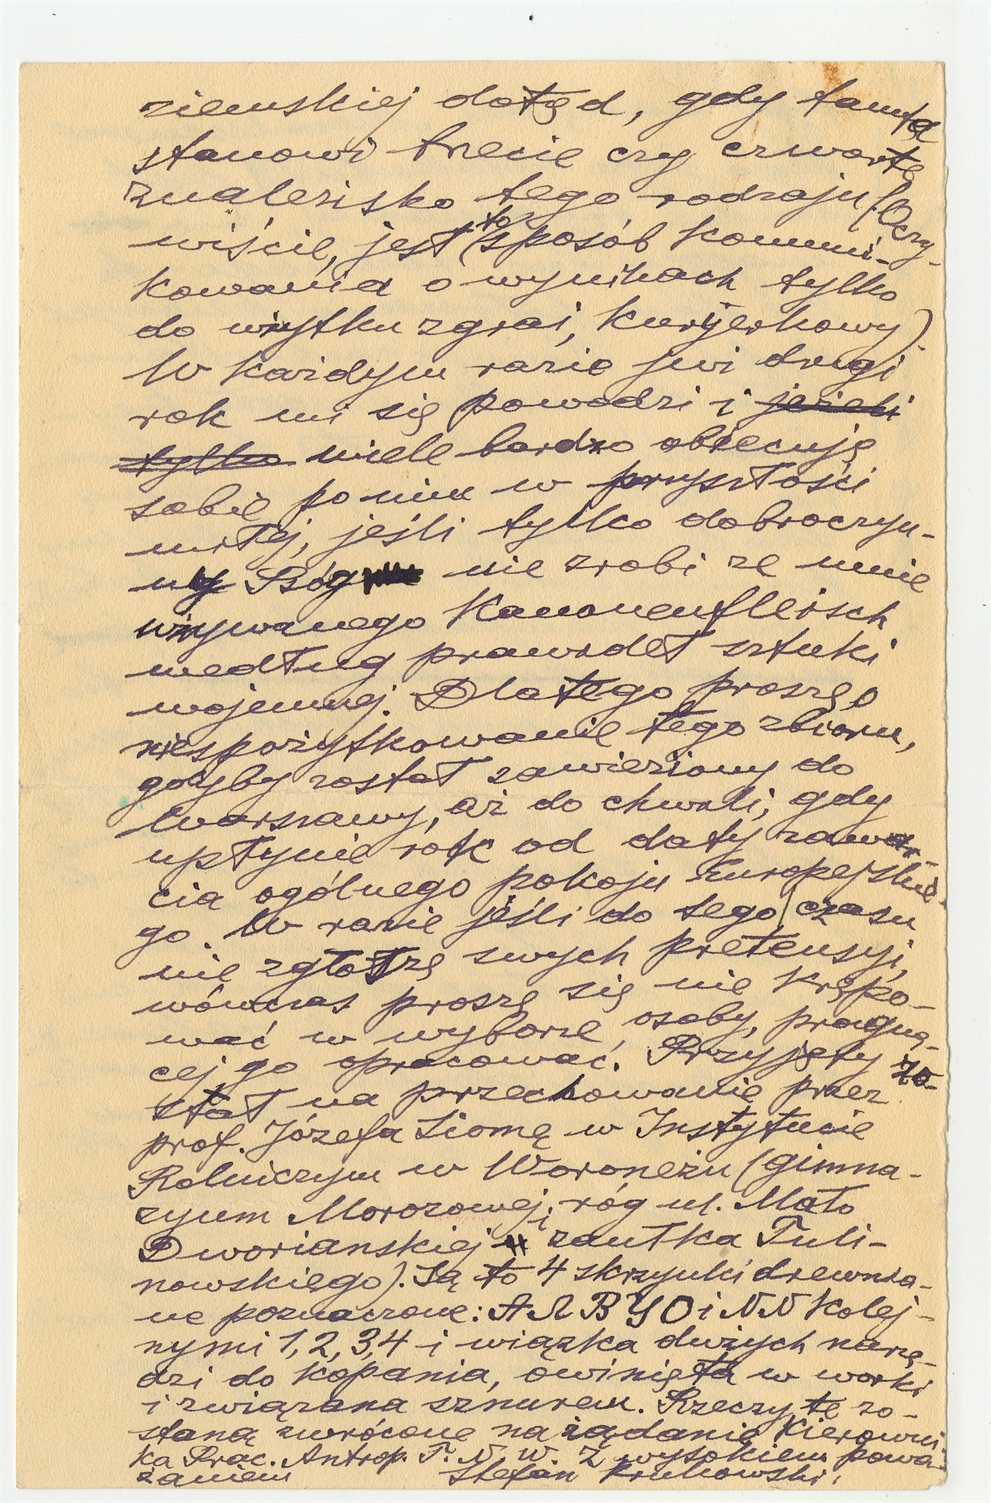 ziemskiej dotąd, gdy tamta
stanowi trzecie czy czwarte
znalezisko tego rodzaju (Oczy-
wiście, jest to sposób komuni-
kowania o wynikach tylko
do użytku zgrai, kurjerkowy).
W każdym razie już drugi
rok mi się powodzi i jeżeli
tylko wiele bardzo obiecuję
sobie po nim w przyszłości
mojej, jeśli tylko dobroczyn-
ny Bóg nie zrobi ze mnie
używanego Kanonenfleisch
według prawideł sztuki
wojennej. Dlatego proszę o
niespożytkowanie tego zbioru,
gdyby został zawieziony do
Warszawy, aż do chwili, gdy
upłynie rok od daty zawar-
cia ogólnego pokoju Europejskie-
go. W razie jeśli do tego czasu
nie zgłoszę swych pretensyj,
wówczas proszę się nie krępo-
wać w wyborze osoby, pragną-
cej go opracować. Przyjęty zo-
stał na przechowanie przez
prof. Józefa Siomę w Instytucie
Rolniczym w Woroneżu (gimna-
zyum Morozowej, róg ul. Mało
Dworianskiej i zaułka Tuli-
nowskiego). Są to 4 skrzynki drewnia-
ne poznaczone: А Л В У О i NN kolej-
nymi 1, 2, 3, 4 i wiązka dużych narzę-
dzi do kopania, owinięta w worki
i związana sznurem. Rzeczy te zo-
staną zwrócone na żądanie Kierowni-
ka Prac. Antrop. T. N. W. Z wysokiem powa-
żaniem Stefan Krukowski.